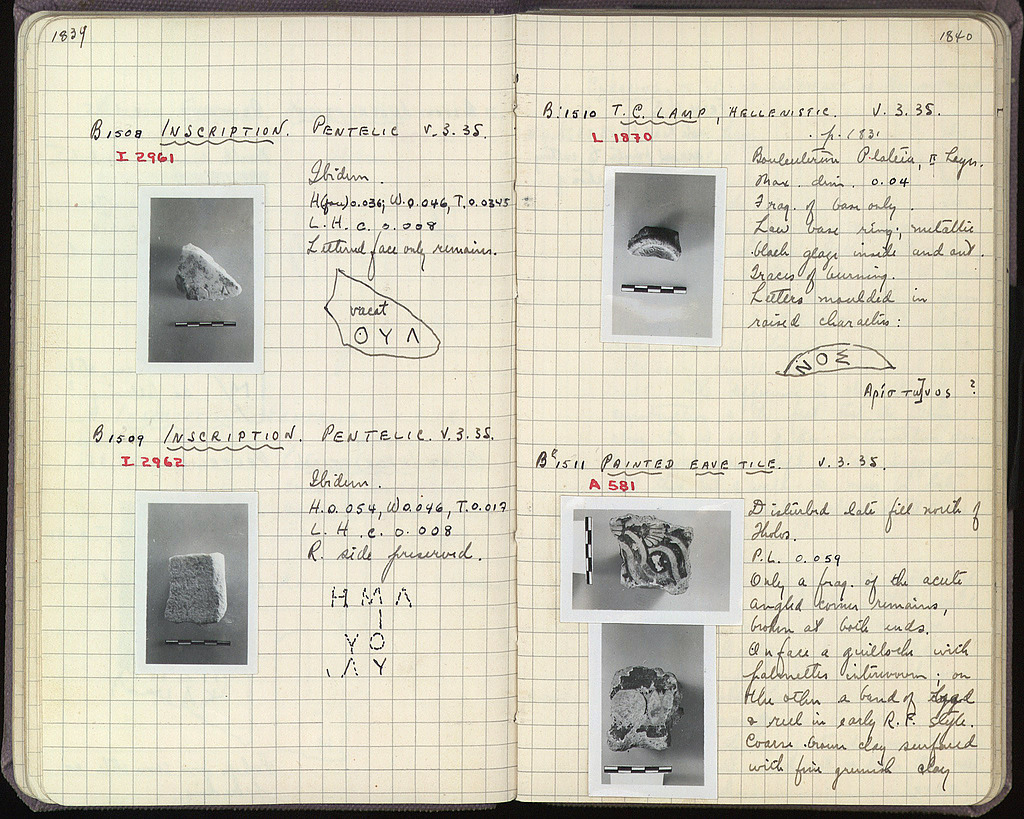 1839
B 1508 INSCRIPTION. PENTELIC V.3.35.
I 2961
Ibidem.
H(pres) 0.036; W. 0.046, T. 0.0345
L.H. c. 0.008
Lettered face only remains.
vacat
ΟΥΛ
B 1509 INSCRIPTION. PENTELIC. V.3.35.
I 2962
Ibidem.
H. 0.054, W 0.046, T. 0.017
L.H. c. 0.008
R. side preserved.
Η Μ Λ
Ι
Υ Ο
Λ Υ
1840
B' 1510 T.C. LAMP, HELLENISTIC. V.3.35.
L 1870
p. 1831
Bouleuterion Plateia, II Layer.
Max. dim. 0.04
Frag. of base only.
Low base ring; metallic
black glaze inside and out.
Traces of burning.
Letters moulded in
raised characters:
ΝΟΣ
Αρίστω]νος ?
B' 1511 PAINTED EAVE TILE. V.3.35.
A 581
Disturbed late fill north of
Tholos.
P.L. 0.059
Only a frag. of the acute
angled corner remains,
broken at both ends.
On face a guilloche with
palmettes interwoven; on
the other a band of
& reel in early R.F. style.
Coarse brown clay surfaced
with fine greenish clay